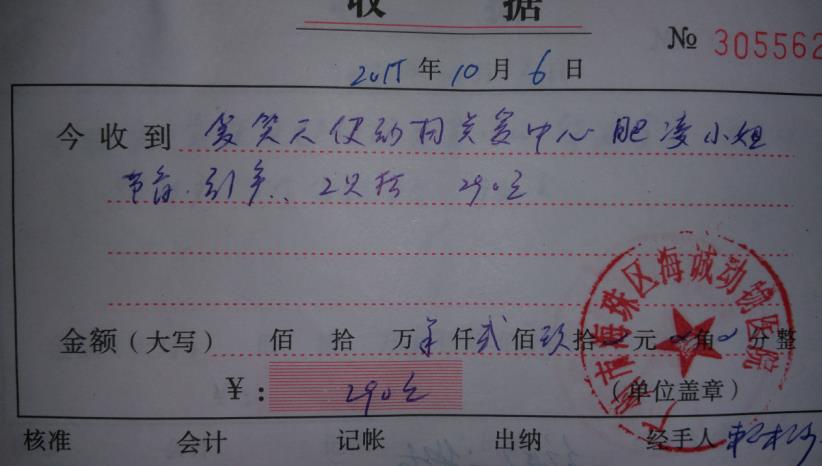 收 据
№ 305562
2015 年 10 月 6 日
今收到 爱笑天使动物关爱中心 肥凌小姐
节育. 2只 290元
金额(大写) 佰 拾 万 仟 贰 佰 玖 拾 元 角 分整
¥: 290元
(单位盖章)
广州市海珠区海诚动物医院
核准 会计 记帐 出纳 经手人